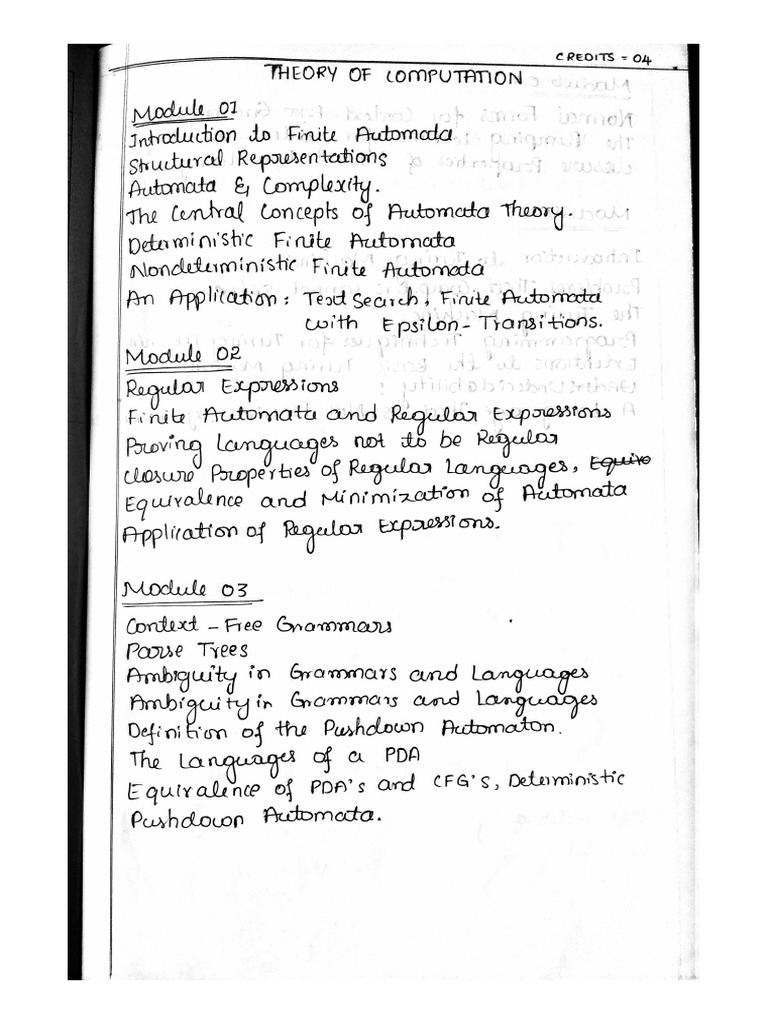 CREDITS = 04
THEORY OF COMPUTATION
Module 01
Introduction to Finite Automata
Structural Representations
Automata & Complexity.
The Central Concepts of Automata Theory.
Deterministic Finite Automata
Nondeterministic Finite Automata
An Application: Text Search, Finite Automata
with Epsilon-Transitions.
Module 02
Regular Expressions
Finite Automata and Regular Expressions
Proving Languages not to be Regular
Closure Properties of Regular Languages, Equive
Equivalence and Minimization of Automata
Application of Regular Expressions.
Module 03
Context-Free Grammars
Parse Trees
Ambiguity in Grammars and Languages
Ambiguity in Grammars and Languages
Definition of the Pushdown Automaton.
The Languages of a PDA
Equivalence of PDA's and CFG's, Deterministic
Pushdown Automata.